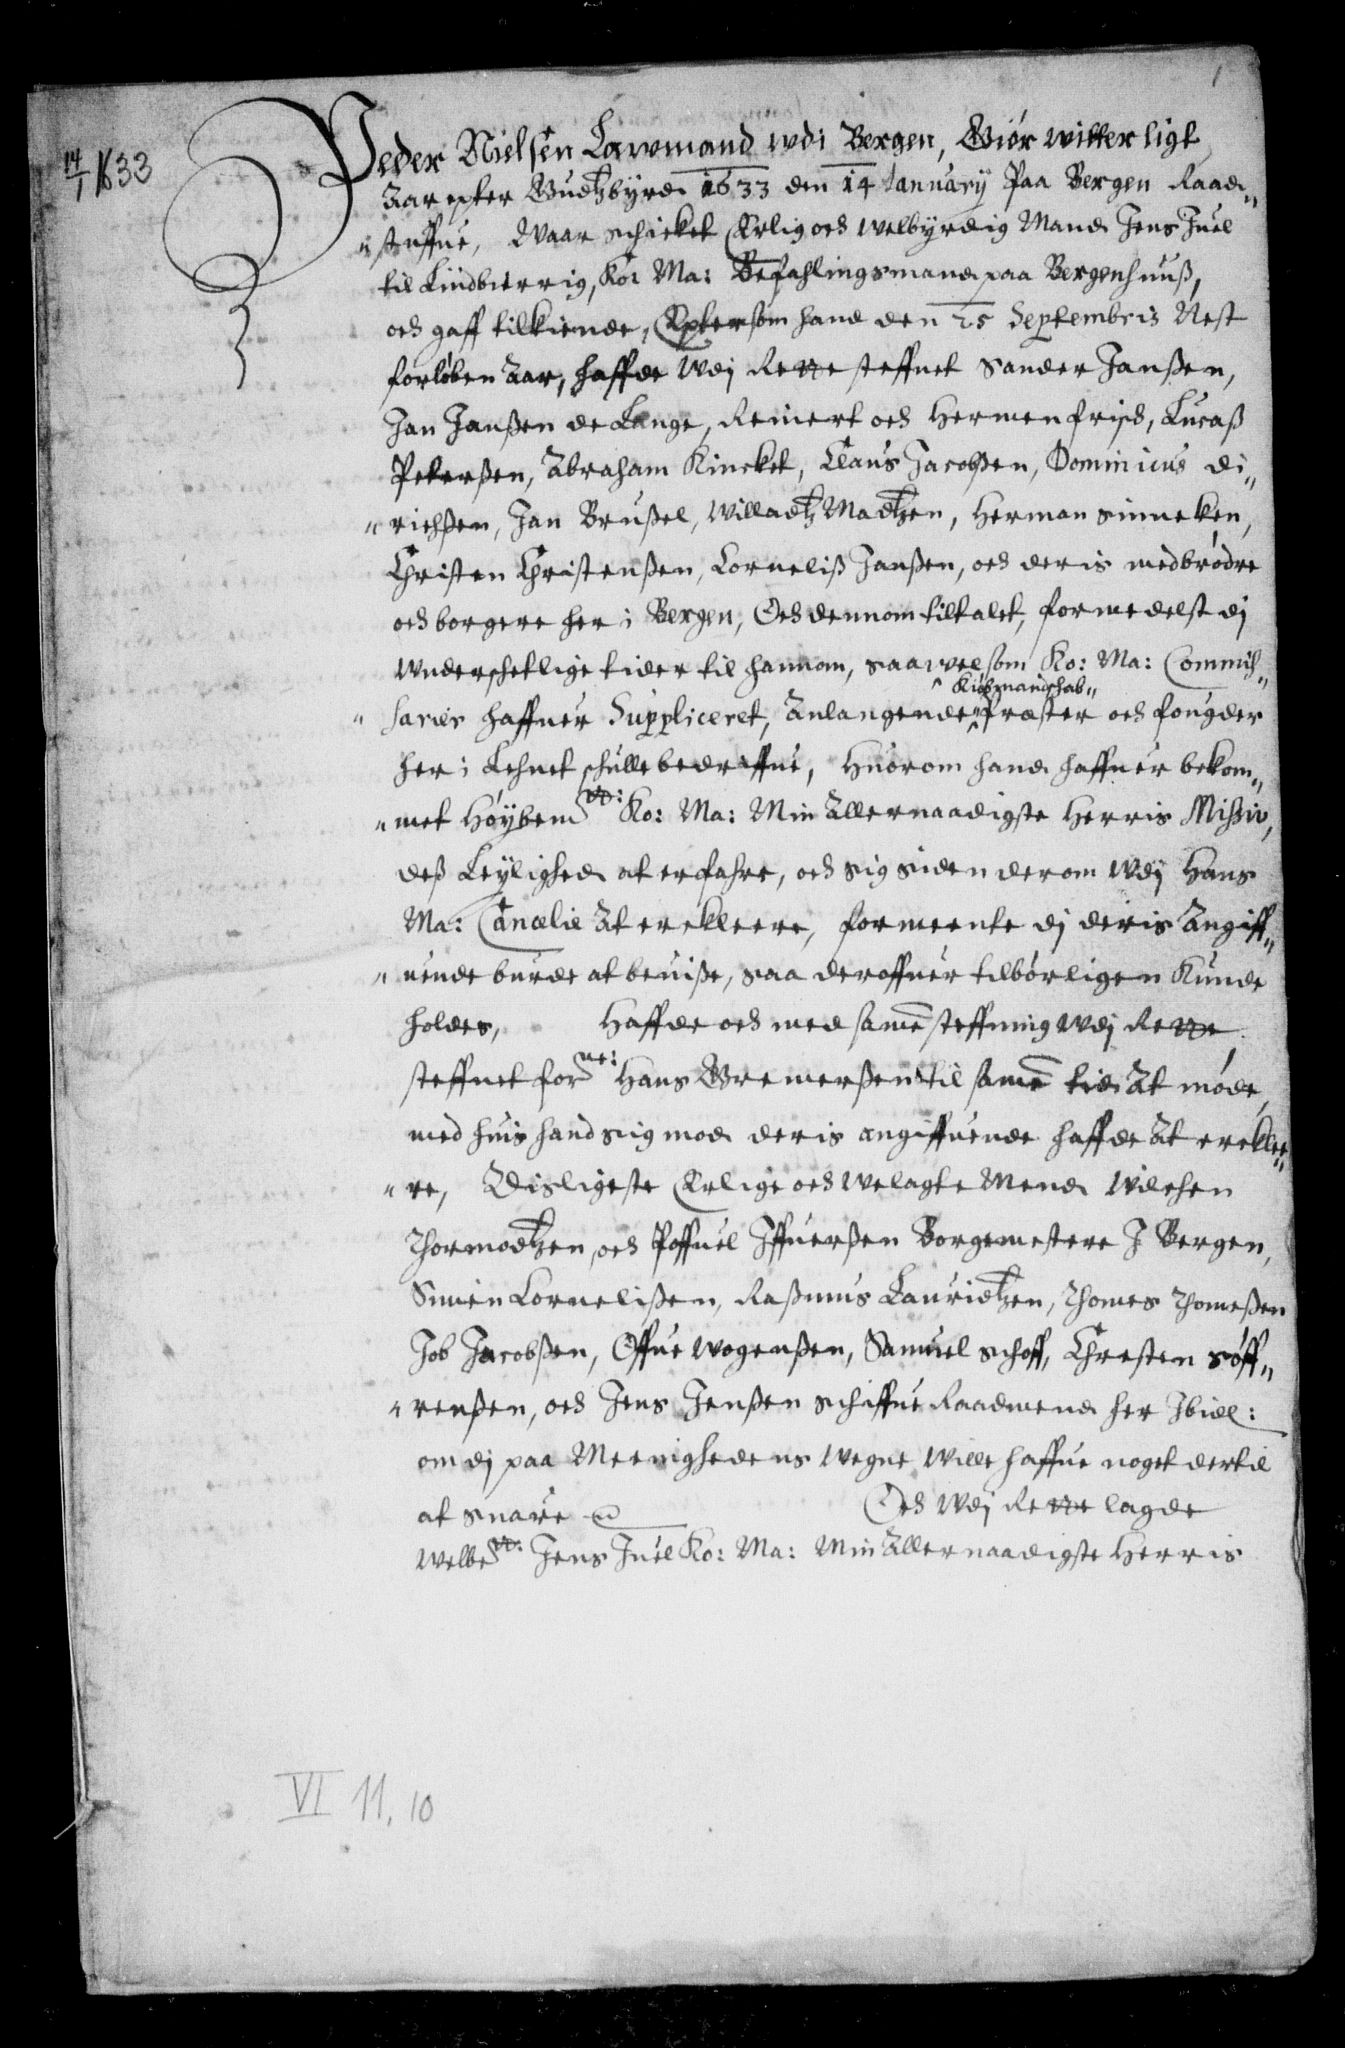 1
14/1 1633
Peder Nielsen Lawmand wdi Bergen, Giør witterligt
Aar epter Gudtzbyrd 1633 den 14 January Paa Bergen Raad„
„stuffue, Waar schicket Erlig och welbyrdig Mand Jens Juel
til Lindbierrig, Ko: Ma: Befahlingsmand paa Bergenhuuß,
och gaff tilkiende, Eptersom hand den 25 Septembris Nest
forløben Aar, haffde wdj Rette steffnet Sander Janßen,
Jan Janßen de Lange, Reinert och Hermen frisch, Lucaß
Peterßen, Abraham Kincket, Claus Jacobßen, Dominicus di„
„richßen, Jan Brußel, Willadtz Madtzen, Herman sinneken,
Christen Christenßen, Corneliß Janßen, och deris medbrødre
och borgere her i Bergen, Och dennom tiltalet, formedelst dj
wnderschetlige tider til hannom, saa wel som Ko: Ma: Commis„
Kiøbmandschab„
„sarier haffuer Suppliceret, Anlangende præster och fougder
her i Lehnet schulle bedriffue, Huorom hand haffuer bekom„
„met Høybemte: Ko: Ma: Min Allernaadigste Herris Missiv,
deß Leylighed at erfahre, och sig siden derom wdj Hans
Ma: Cancelie At erekleere, formeente dj deris Angiff„
„uende burde at beuiße, saa deroffuer tilbørligen Kunde
holdes, Haffde och med samme steffning wdj Rette
steffnet forne: Hans Gremerßen til samme tid At møde,
med huis hand siig mod deris angiffuende haffde At erklee„
„re, Disligeste Erlige och welagte Mend Wdchen
Thormodtzen, och Poffuel Iffuerßen Borgemestere I Bergen,
Simen Cornelißen, Raßmus Lauridtzen, Thomes Thomeßen
Job Jacobßen, Offue Wogenßen, Samuel schoff, Chresten søff„
„renßen, och Jens Jenßen schiffue Raadmend her Ibid:
om dj paa Meenighedens wegne wille haffue noget dertil
at suare Och wdj Rette lagde
Welbte: Jens Juel Ko: Ma: Min Allernaadigste Herris
VI 11, 10